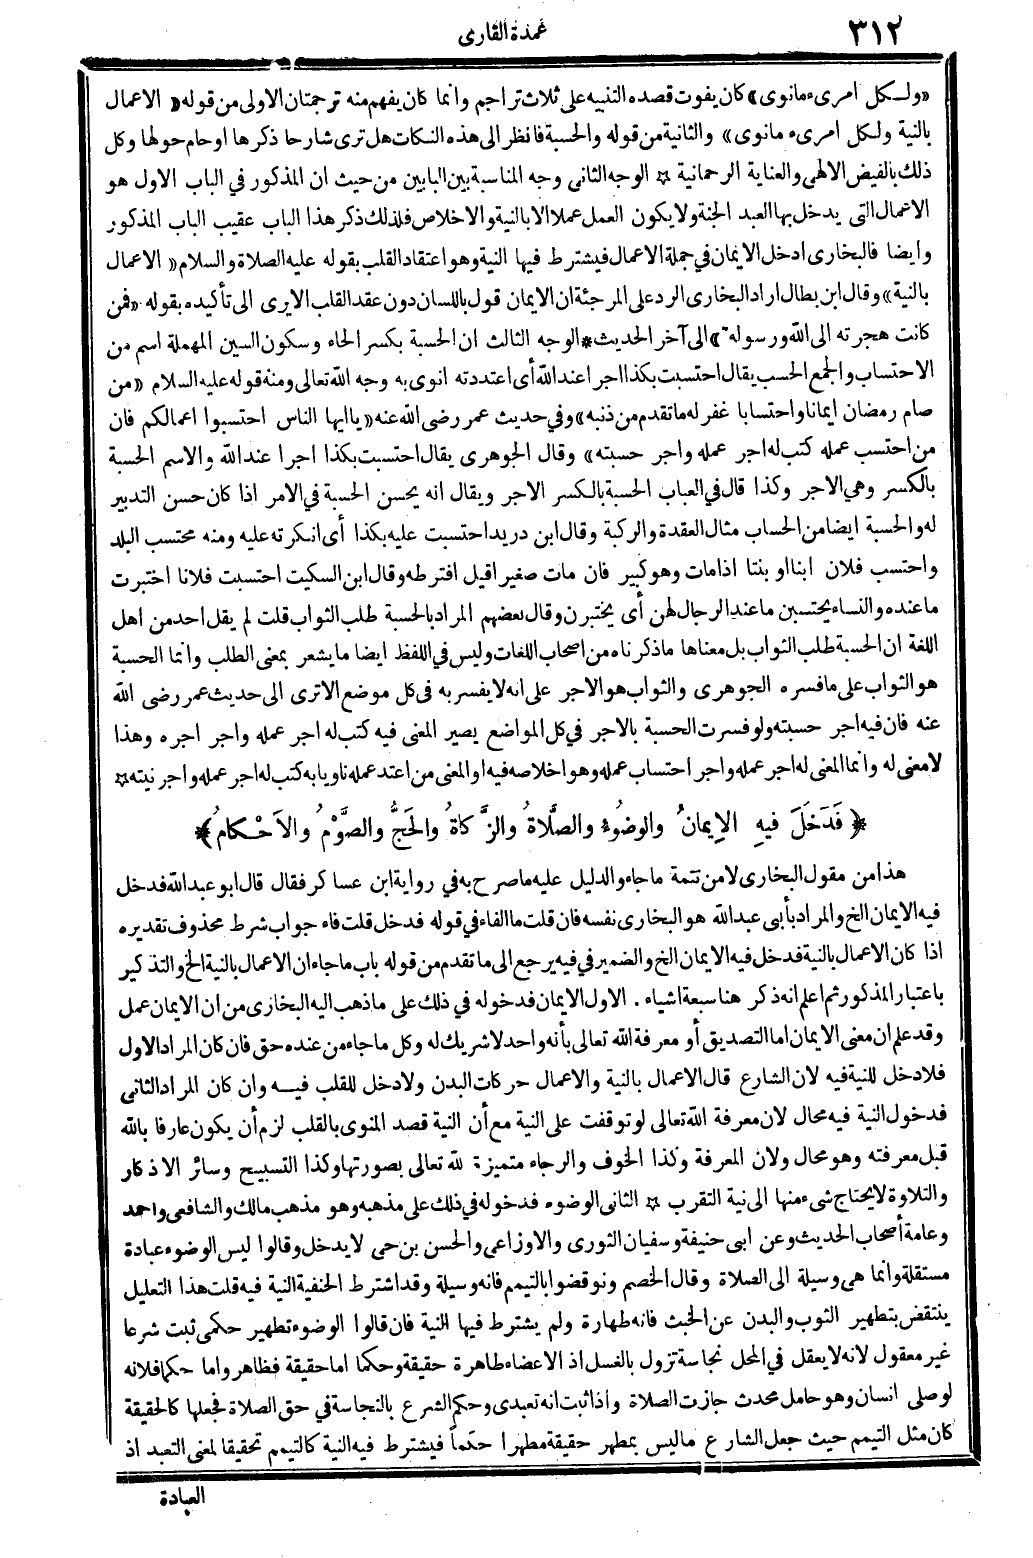 ٣١٢
عمدة القارى
«ولكل امرىء مانوى» كان يفوت قصده التنبيه على ثلاث تراجم وانما كان يفهم منه ترجمتان الاولى من قوله «الاعمال
بالنية ولكل امرىء مانوى» والثانية من قوله والحسبة فانظر الى هذه النكات هل ترى شارحا ذكرها او حام حولها وكل
ذلك بالفيض الالهى والعناية الرحمانية * الوجه الثانى وجه المناسبة بين البابين من حيث ان المذكور في الباب الاول هو
الاعمال التى يدخل بها العبد الجنة ولا يكون العمل عملا الا بالنية والاخلاص فلذلك ذكر هذا الباب عقيب الباب المذكور
وايضا فالبخارى ادخل الايمان في جملة الاعمال فيشترط فيها النية وهو اعتقاد القلب بقوله عليه الصلاة والسلام «الاعمال
بالنية» وقال ابن بطال اراد البخارى الرد على المرجئة ان الايمان قول باللسان دون عقد القلب الا يرى الى تأكيده بقوله «فمن
كانت هجرته الى الله ورسوله» الى آخر الحديث * الوجه الثالث ان الحسبة بكسر الحاء وسكون السين المهملة اسم من
الاحتساب والجمع الحسب يقال احتسبت بكذا اجرا عند الله أى اعتددته انوى به وجه الله تعالى ومنه قوله عليه السلام «من
صام رمضان ايمانا واحتسابا غفر له ما تقدم من ذنبه» وفي حديث عمر رضى الله عنه «ياايها الناس احتسبوا اعمالكم فان
من احتسب عمله كتب له اجر عمله واجر حسبته» وقال الجوهرى يقال احتسبت بكذا اجرا عند الله والاسم الحسبة
بالكسر وهي الاجر وكذا قال في العباب الحسبة بالكسر الاجر ويقال انه يحسن الحسبة في الامر اذا كان حسن التدبير
له والحسبة ايضا من الحساب مثال العقدة والركبة وقال ابن دريد احتسبت عليه بكذا أى انكرته عليه ومنه محتسب البلد
واحتسب فلان ابنا او بنتا اذا مات وهو كبير فان مات صغيرا قيل افترطه وقال ابن السكيت احتسبت فلانا اختبرت
ما عنده والنساء يحتسبن ما عند الرجال لهن أى يختبرن وقال بعضهم المراد بالحسبة طلب الثواب قلت لم يقل احد من اهل
اللغة ان الحسبة طلب الثواب بل معناها ما ذكرناه من اصحاب اللغات وليس في اللفظ ايضا ما يشعر بمعنى الطلب وانما الحسبة
هو الثواب على ما فسره الجوهرى والثواب هو الاجر على انه لا يفسر به فى كل موضع الا ترى الى حديث عمر رضى الله
عنه فان فيه اجر حسبته ولو فسرت الحسبة بالاجر في كل المواضع يصير المعنى فيه كتب له اجر عمله واجر اجره وهذا
لا معنى له وانما المعنى له اجر عمله واجر احتساب عمله وهو اخلاصه فيه او المعنى من اعتد عمله ناويا به كتب له اجر عمله واجر نيته *
﴿ فَدَخَلَ فيهِ الإِيمانُ والوضُوءُ والصَّلاةُ والزَّكاةُ والحَجُّ والصَّوْمُ والأَحْكامُ ﴾
هذا من مقول البخارى لا من تتمة ما جاء والدليل عليه ما صرح به في رواية ابن عساكر فقال قال ابو عبد الله فدخل
فيه الايمان الخ والمراد بأبى عبد الله هو البخارى نفسه فان قلت ما الفاء في قوله فدخل قلت فاء جواب شرط محذوف تقديره
اذا كان الاعمال بالنية فدخل فيه الايمان الخ والضمير في فيه يرجع الى ما تقدم من قوله باب ما جاء ان الاعمال بالنية الخ والتذكير
باعتبار المذكور ثم اعلم انه ذكر هنا سبعة اشياء . الاول الايمان فدخوله في ذلك على ما ذهب اليه البخارى من ان الايمان عمل
وقد علم ان معنى الايمان اما التصديق أو معرفة الله تعالى بأنه واحد لا شريك له وكل ما جاء من عنده حق فان كان المراد الاول
فلا دخل للنية فيه لان الشارع قال الاعمال بالنية والاعمال حركات البدن ولا دخل للقلب فيه وان كان المراد الثانى
فدخول النية فيه محال لان معرفة الله تعالى لو توقفت على النية مع أن النية قصد المنوى بالقلب لزم أن يكون عارفا بالله
قبل معرفته وهو محال ولان المعرفة وكذا الخوف والرجاء متميزة لله تعالى بصورتها وكذا التسبيح وسائر الاذكار
والتلاوة لا يحتاج شىء منها الى نية التقرب * الثانى الوضوء فدخوله في ذلك على مذهبه وهو مذهب مالك والشافعى واحمد
وعامة أصحاب الحديث وعن ابى حنيفة وسفيان الثورى والاوزاعى والحسن بن حى لا يدخل وقالوا ليس الوضوء عبادة
مستقلة وانما هى وسيلة الى الصلاة وقال الخصم ونوقضوا بالتيمم فانه وسيلة وقد اشترط الحنفية النية فيه قلت هذا التعليل
ينتقض بتطهير الثوب والبدن عن الخبث فانه طهارة ولم يشترط فيها النية فان قالوا الوضوء تطهير حكمى ثبت شرعا
غير معقول لانه لا يعقل في المحل نجاسة تزول بالغسل اذ الاعضاء طاهرة حقيقة وحكما اما حقيقة فظاهر واما حكما فلانه
لو صلى انسان وهو حامل محدث جازت الصلاة واذا ثبت انه تعبدى وحكم الشرع بالنجاسة في حق الصلاة فجعلها كالحقيقة
كان مثل التيمم حيث جعل الشارع ما ليس بمطهر حقيقة مطهرا حكماً فيشترط فيه النية كالتيمم تحقيقا لمعنى التعبد اذ
العبادة